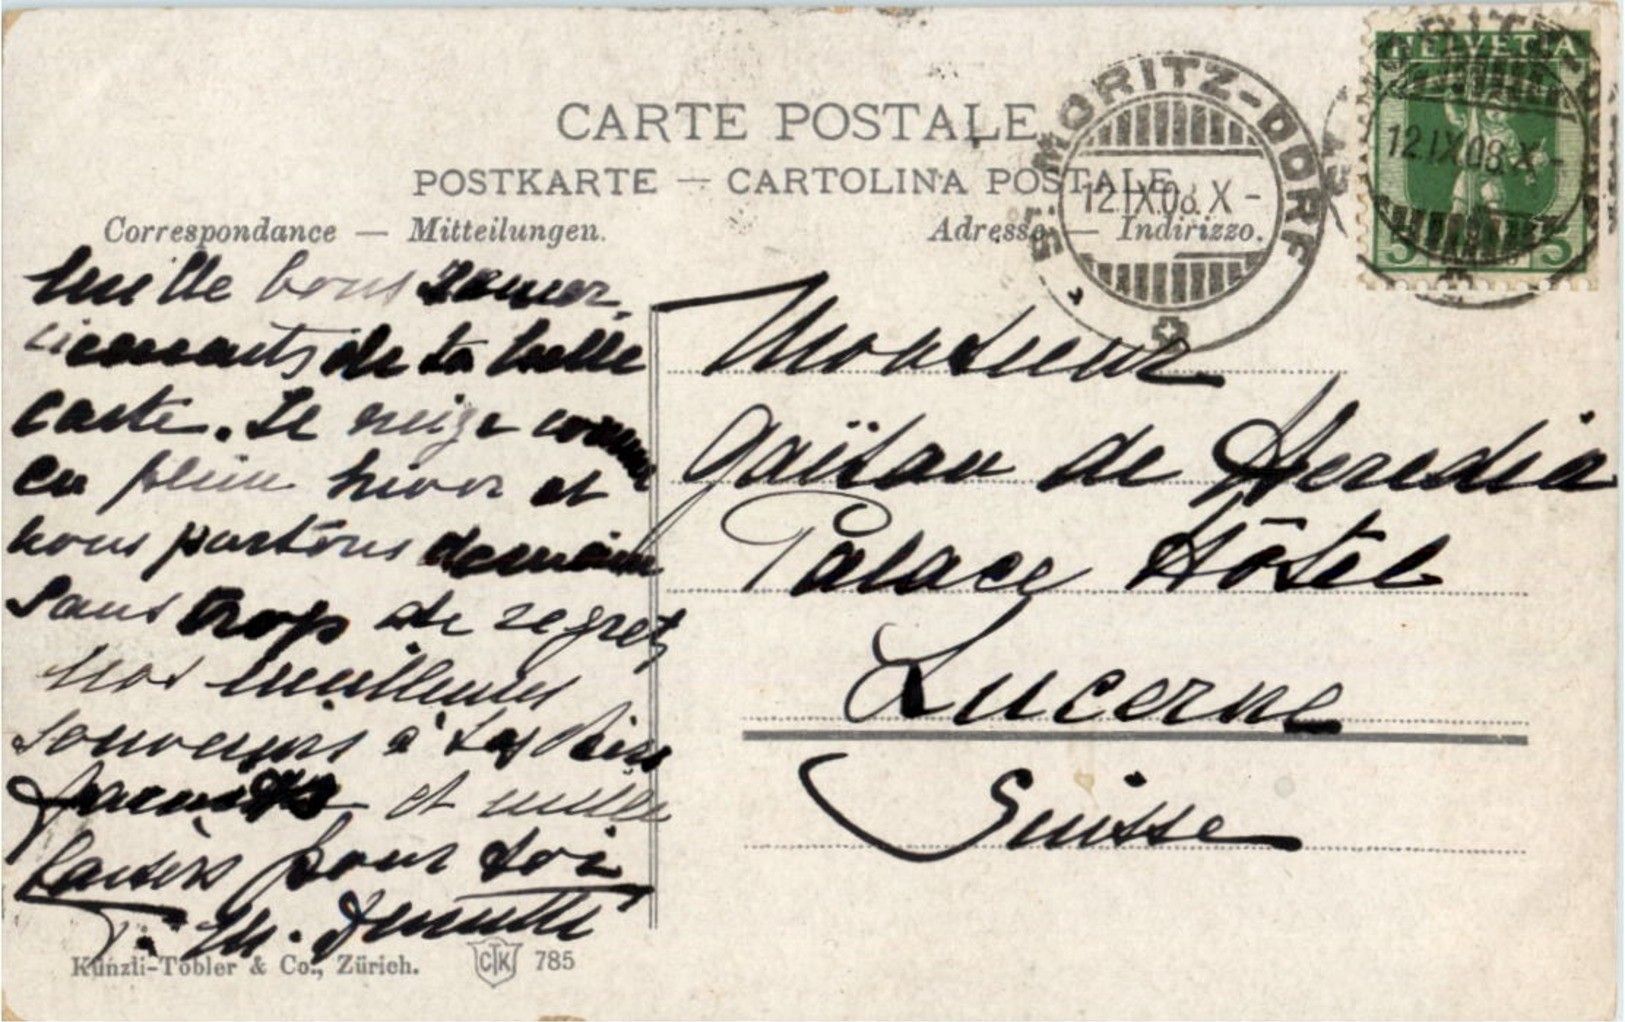 CARTE POSTALE
POSTKARTE — CARTOLINA POSTALE
Correspondance — Mitteilungen.
Adresse — Indirizzo.
St. MORITZ-DORF
12.IX.08.X-
HELVETIA
12.IX.08.X-
5 5
Mille bons remer-
ciements de ta belle
carte. Il neige comme
en plein hiver et
nous partons demain
sans trop de regret
Nos meilleurs
souvenirs à tes
parents et mille
baisers pour toi
T. M.
Monsieur
Gaëtan de Heredia
Palace Hôtel
Lucerne
Suisse
Künzli-Tobler & Co., Zürich.
CTK 785